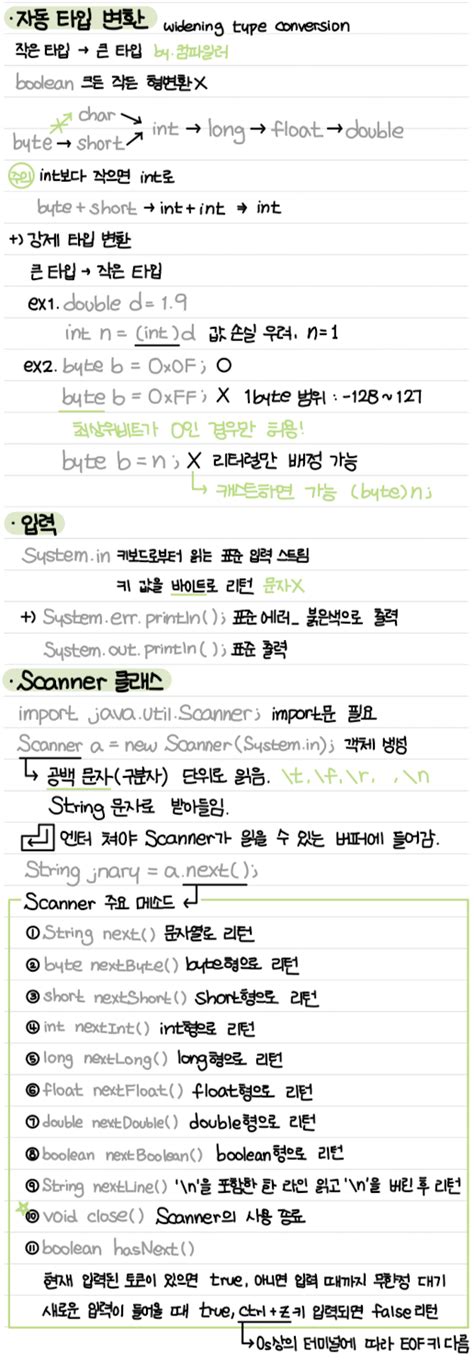 ·자동 타입 변환 widening type conversion
작은 타입 → 큰 타입 by.컴파일러
boolean 크든 작든 형변환X
char
byte → short → int → long → float → double
주의 int보다 작으면 int로
byte + short → int + int ⇒ int
+) 강제 타입 변환
큰 타입 → 작은 타입
ex1. double d = 1.9
int n = (int)d 값 손실 우려. n=1
ex2. byte b = 0x0F; O
byte b = 0xFF; X 1byte 범위 : -128 ~ 127
최상위비트가 0인 경우만 허용!
byte b = n; X 리터럴만 배정 가능
↳ 캐스트하면 가능 (byte)n;
· 입력
System.in 키보드로부터 읽는 표준 입력 스트림
키 값을 바이트로 리턴 문자X
+) System.err.println(); 표준 에러_ 붉은색으로 출력
System.out.println(); 표준 출력
·Scanner 클래스
import java.util.Scanner; import문 필요
Scanner a = new Scanner(System.in); 객체 생성
↳ 공백 문자(구분자) 단위로 읽음. \t, \f, \r, , \n
String 문자로 받아들임.
엔터 쳐야 Scanner가 읽을 수 있는 버퍼에 들어감.
String jnary = a.next();
Scanner 주요 메소드
① String next() 문자열로 리턴
② byte nextByte() byte형으로 리턴
③ short nextShort() Short형으로 리턴
④ int nextInt() int형으로 리턴
⑤ long nextLong() long형으로 리턴
⑥ float nextFloat() float형으로 리턴
⑦ double nextDouble() double형으로 리턴
⑧ boolean nextBoolean() boolean형으로 리턴
⑨ String nextLine() '\n'을 포함한 한 라인 읽고 '\n'을 버린 후 리턴
⑩ void close() Scanner의 사용 종료
⑪ boolean hasNext()
현재 입력된 토큰이 있으면 true, 아니면 입력 때까지 무한정 대기
새로운 입력이 들어올 때 true, ctrl + z 키 입력되면 false 리턴
↳ Os상의 터미널에 따라 EOF키 다름